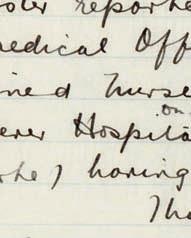 ster reporte
medical Off
ined Nurse
on
ever Hospita
rhe) having
Tha